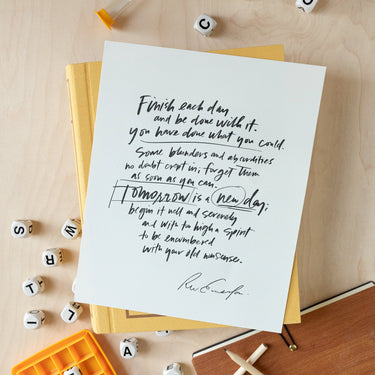 Finish each day
and be done with it.
You have done what you could.
Some blunders and absurdities
no doubt crept in; forget them
as soon as you can.
Tomorrow is a new day;
begin it well and serenely
and with too high a spirit
to be encumbered
with your old nonsense.
RW Emerson
C
C
S
R
W
T
I
A